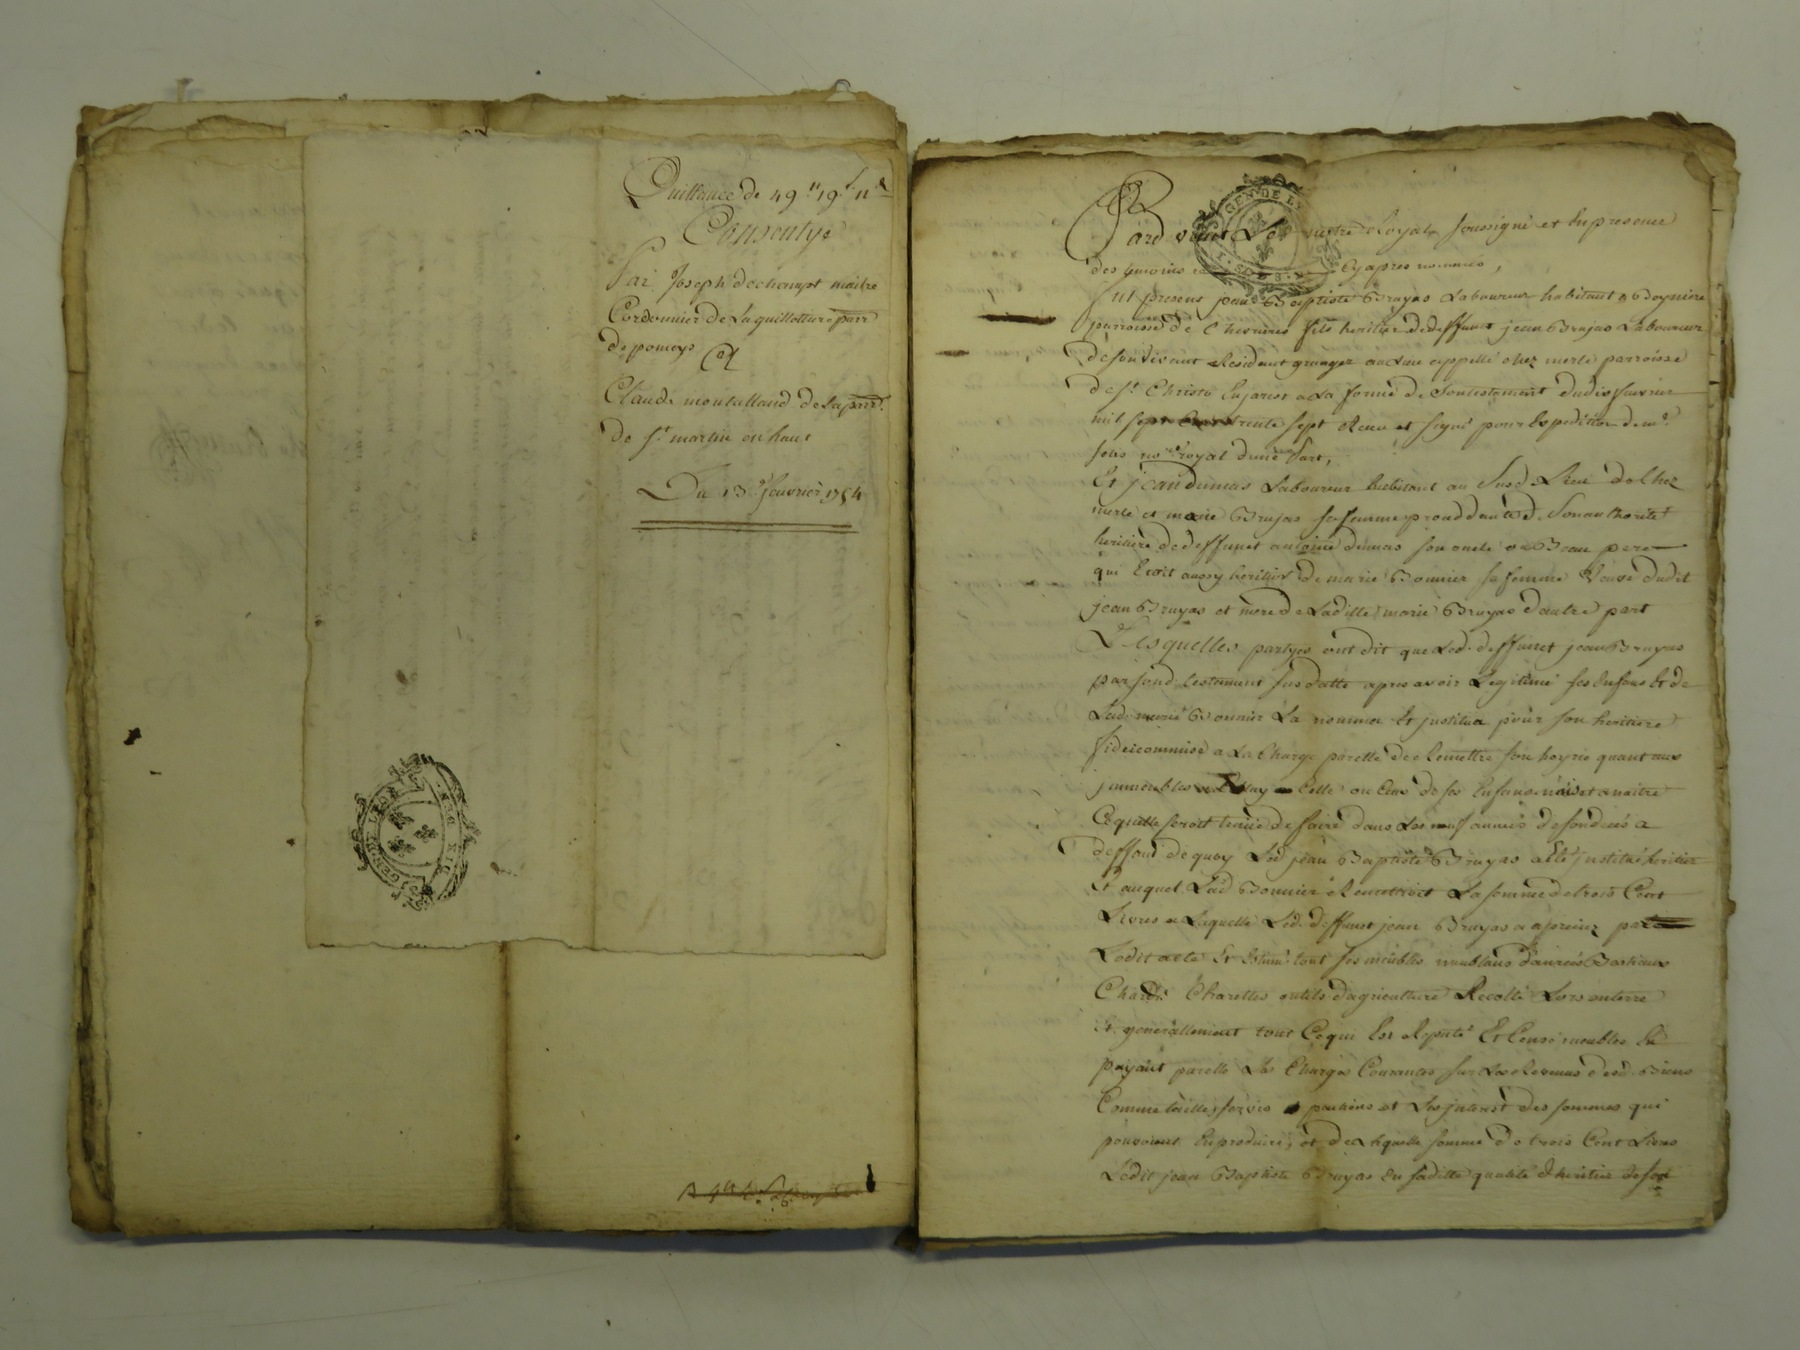 Quittance de 49" 19s 11d
Consentye
Par Joseph dechampt maitre
Cordonnier de Laguillottiere parr
de pomeys
Et
Claude montalland de la parr.
de st martin en haut
Du 13e fevrier 1754
GEN DE LYON
Pard'vant Le notre Royal soussigné et En presence
des temoins cy apres nommés,
fut present jean Baptiste Bruyas Laboureur habitant a Boyniere
parroisse de Chevrieres fils heritier de deffunt jean Bruyas Laboureur
de son vivant Resident granger au Lieu appellé chez merle parroisse
de st Christo En jarest a La forme de Son testament du dix fevrier
mil sept Cent trente sept Receu et signé pour Expedition de me
no.re royal d'une Part,
Et jean dumas Laboureur habitant au Susd. Lieu de Chez
merle et marie Bruyas sa femme proceddante de Son authorité
heritiere de deffunct antoine dumas son oncle ou Beau pere
qui Etoit aussy heritier de marie Bonnier sa femme Veuve dudit
jean Bruyas et mere de Laditte marie Bruyas d'autre part
Lesquelles partyes ont dit que Led. deffunct jean Bruyas
par sond. testament susdatté apres avoir Legitimé ses Enfans Et de
Lad. marie Bonnier La nomma Et justitua pour son heritiere
fideicommise a La Charge par elle de Remettre son hoyrie quant aux
jmmeubles a Celuy Celle ou Ceux de ses Enfans néés et a naitre
Ce quelle seroit tenue de faire dans Les neuf années de son deces a
deffaud de quoy Led jean Baptiste Bruyas a Eté justitué heritier
Et auquel Lad Bonnier Remettroit La somme de trois Cent
Livres a Laquelle Led. deffunt jean Bruyas a apreciez par
Ledit acte Et Estimé tout ses meubles meublans danrées Bestiaux
Chards Charettes outils d'agriculture Recolte Lors en terre
Et generallement tout Ce qui Est Reputé Et Censé meubles En
payant par elle Les Charges Courantes sur Les Revenus desd. Biens
Comme tailles, servis pentions et Les jnterest des sommes qui
pouvoient En produire, et de Laquelle somme de trois Cent Livres
Ledit jean Baptiste Bruyas En saditte qualité d'heritier de son